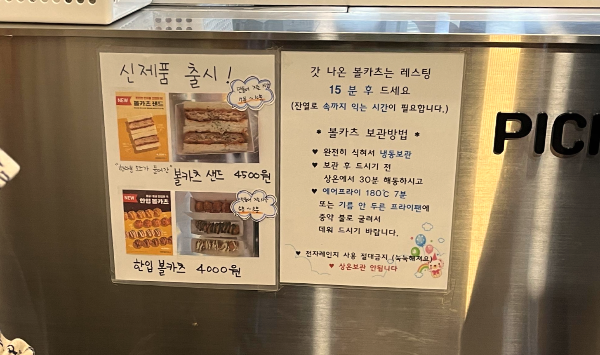 신제품 출시!
NEW
볼카츠 샌드
볼카츠 샌드 4500원
NEW
한입 볼카츠
한입 볼카츠 4000원
갓 나온 볼카츠는 레스팅
15 분 후 드세요
(잔열로 속까지 익는 시간이 필요합니다.)
* 볼카츠 보관방법 *
♥ 완전히 식혀서 냉동보관
♥ 보관 후 드시기 전
상온에서 30분 해동하시고
♥ 에어프라이 180℃ 7분
또는 기름 안 두른 프라이팬에
중약 불로 굴려서
데워 드시기 바랍니다.
♥ 전자레인지 사용 절대금지 (눅눅해져요)
♥ 상온보관 안됩니다
PIC